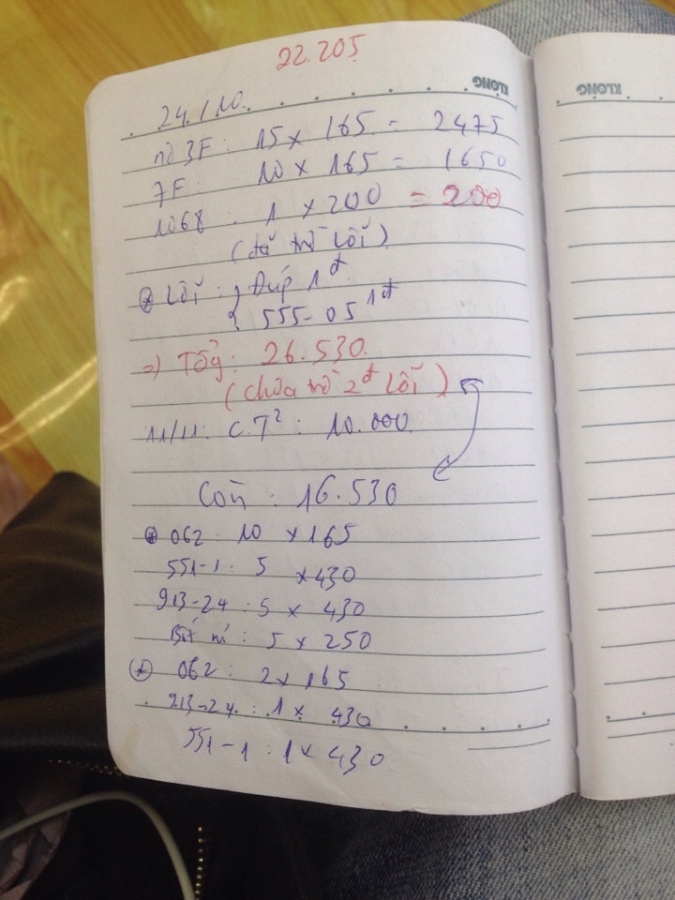 22.205
KLONG
KLONG
24.1.10.
nơ 3F: 15 x 165 = 2475
7F: 10 x 165 = 1650
1068: 1 x 200 = 200
(đã trừ lỗi)
Lỗi: Đúp 1đ
555-05 1đ
=> Tổg: 26.530.
(chưa trừ 2đ lỗi)
11/11: C.T²: 10.000
Còn: 16.530
062: 10 x 165
551-1: 5 x 430
913-24: 5 x 430
: 5 x 250
062: 2 x 165
913-24: 1 x 430
551-1: 1 x 430